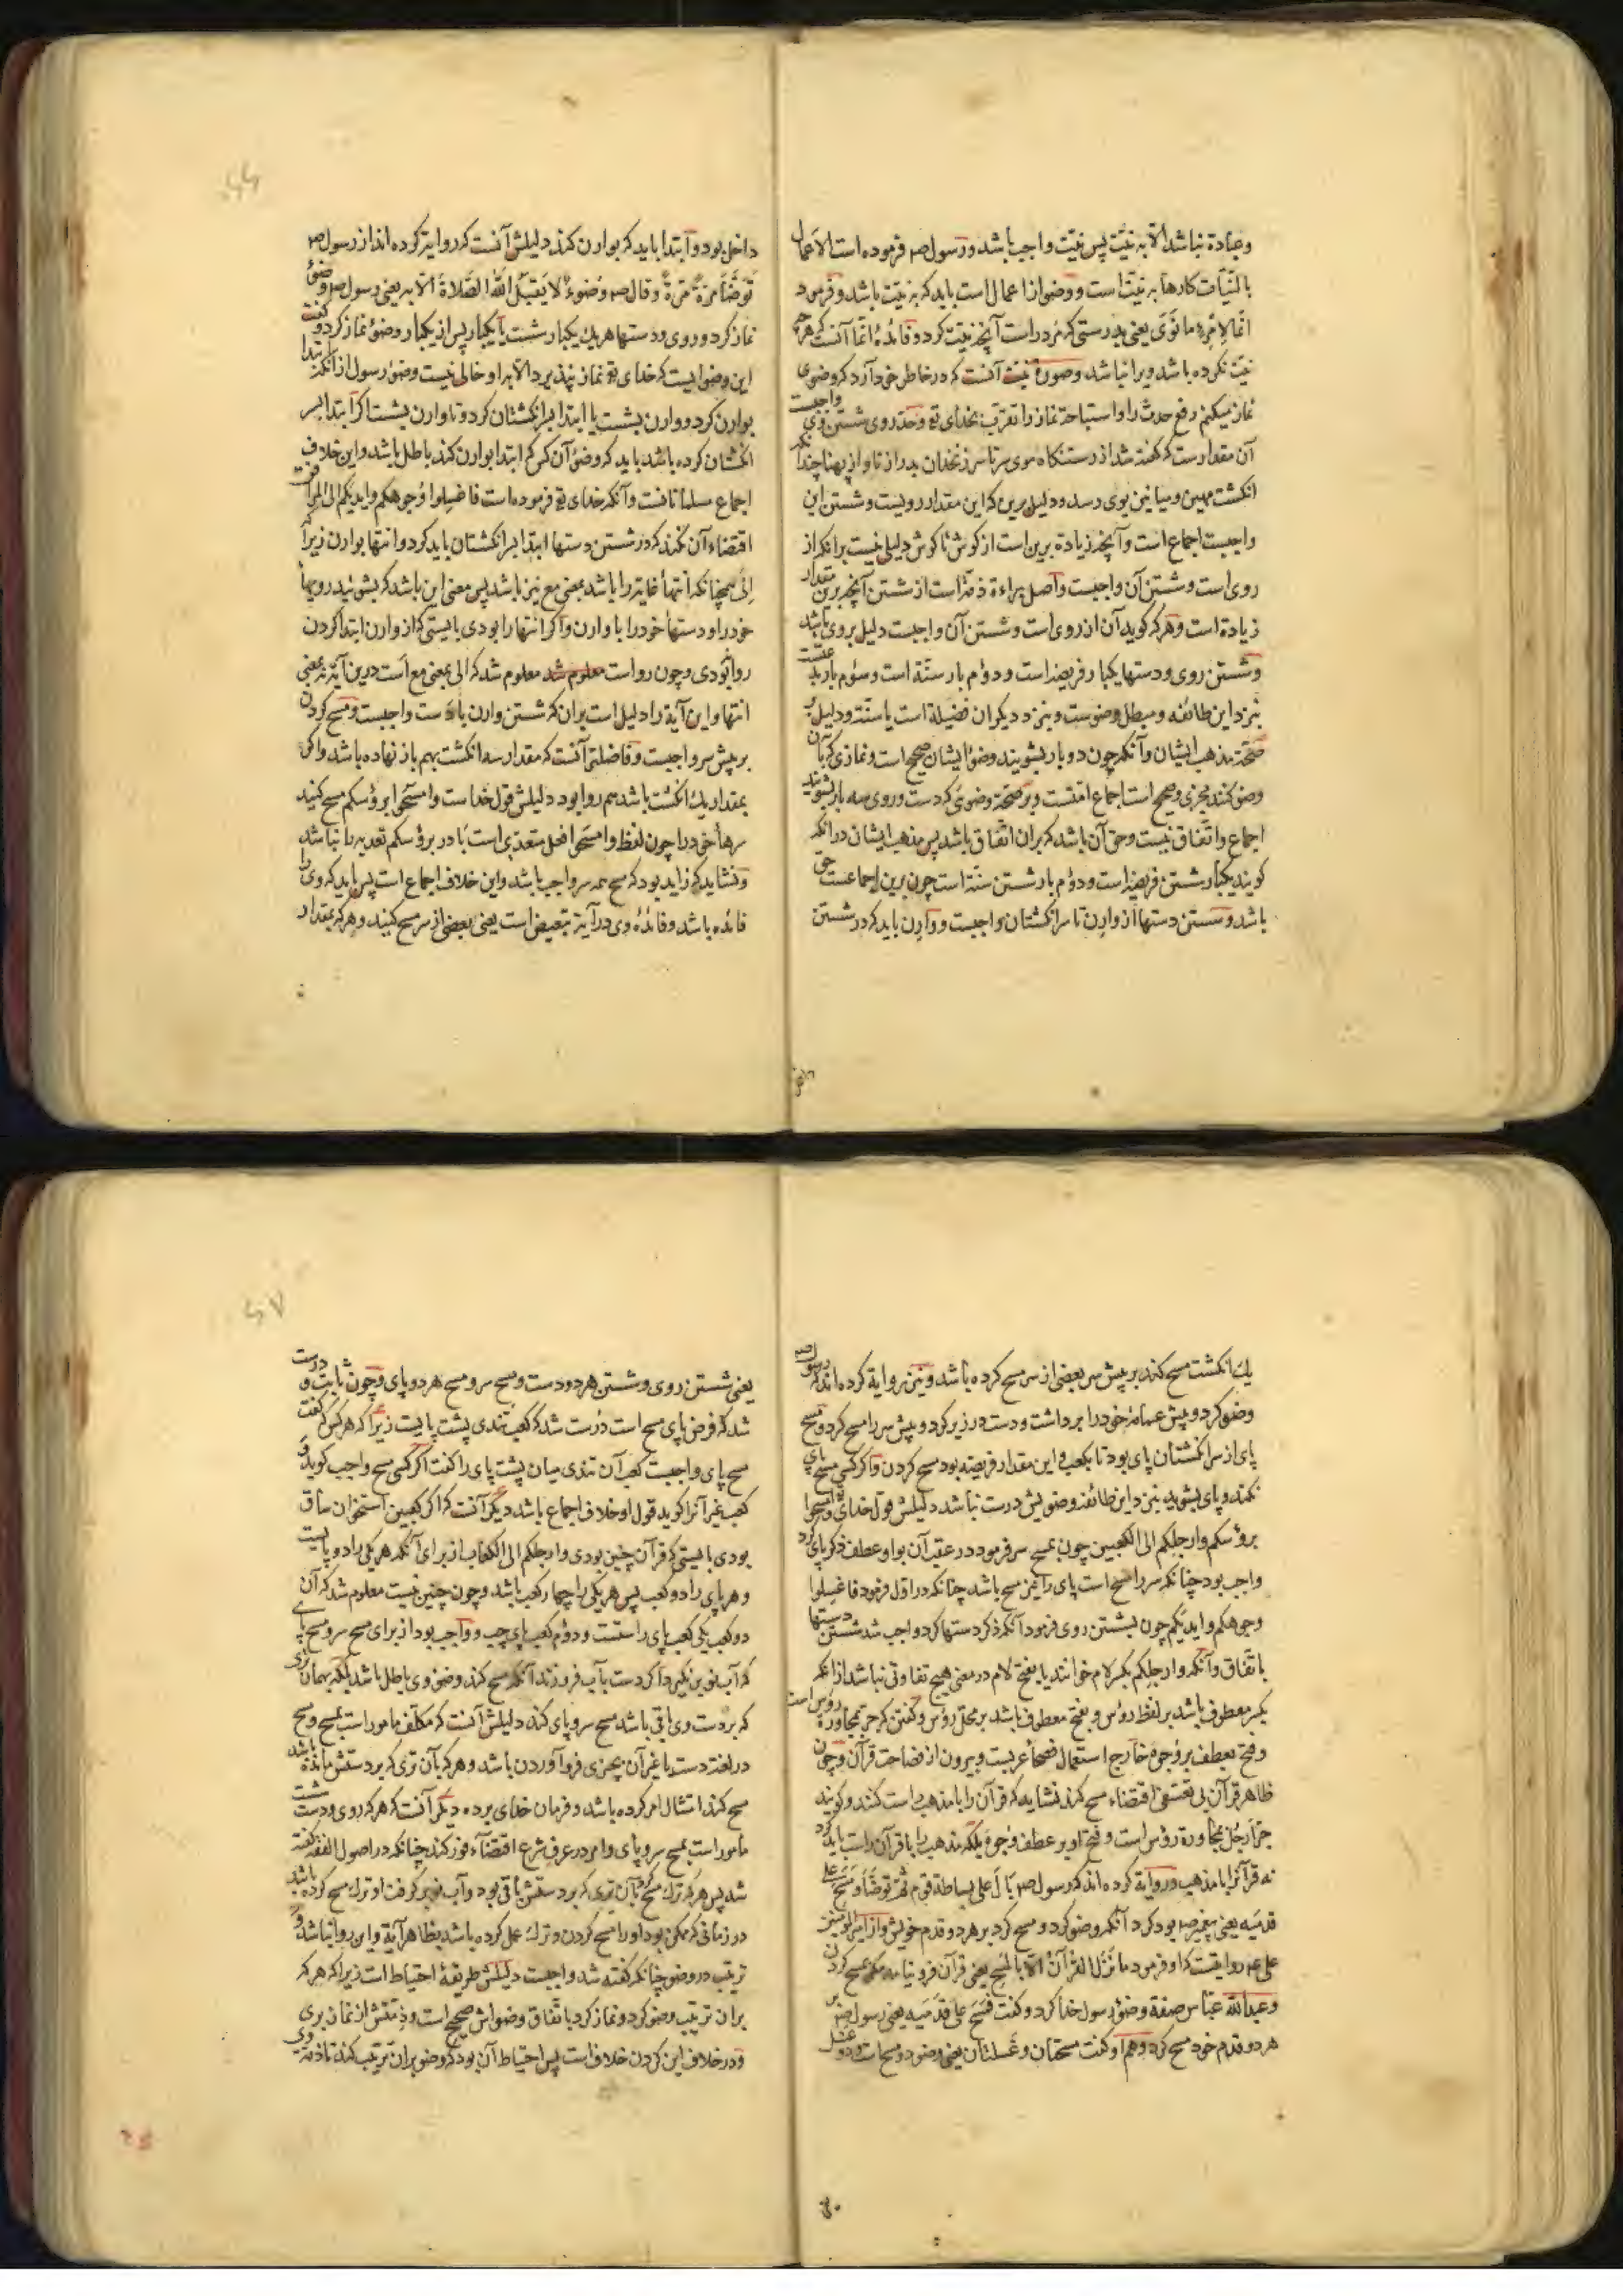 وعبادة نباشد الا به نیت پس نیت واجب باشد ورسول صم فرموده است الاعمال
بالنیات کارها به نیت است ووضو از اعمال است باید که به نیت باشد و فرمود
انما لامرء ما نوی یعنی بدرستی که مرد راست آنچه نیت کرد و فائدهٔ انما آنست که هرچه
نیت نکرده باشد ویرا نباشد وصورة نیت آنست که در خاطر خود آرد که وضوی
نماز میکنم رفع حدث را و استباحة نماز را تقرب بخدای تع وحد روی شستن وی واجبست
آن مقدارست که گفته شد از رستنگاه موی سر تا سر زنخدان بدرازنا و از پهنا چندانکه
انگشت مهین ومیانین بوی رسد ودلیل برین که این مقدار رویست وشستن این
واجبست اجماع است وآنچه زیاده برین است از گوش تا گوش دلیلی نیست بر انکه از
روی است وشستن آن واجبست واصل براءة ذمه است از شستن آنچه برین مقدار
زیاده است وهر که گوید آن از روی است وشستن آن واجبست دلیل بر وی باشد
وشستن روی ودستها یکبار فریضه است ودوم بار سنة است وسوم بار بدعتست
نزد این طائفه ومبطل وضوست وبنزد دیگران فضیلة است یا سنة ودلیل بر
صحة مذهب ایشان وآنکه چون دو بار بشویند وضو ایشان صحیح است ونمازی که بآن
وضو کنند مجزی وصحیح است اجماع امتست وبر صحة وضوئی که دست وروی سه بار بشویند
اجماع واتفاق نیست وحق آن باشد که بران اتفاق باشد پس مذهب ایشان در انکه
گویند یکبار شستن فریضه است ودوم بار شستن سنة است چون برین اجماعست حق
باشد وشستن دستها از وارن تا سر انگشتان واجبست ووارن باید که در شستن
داخل بود وابتدا باید که بوارن کند دلیلش آنست که روایت کرده اند از رسول صم
توضأ مرة مرة وقال صم وضوء لا یقبل الله الصلاة الا به یعنی رسول صم وضوئ
نماز کرد وروی ودستها هر یک یکبار شست یا یکبار پس از یکبار وضوئ نماز کرد وگفت
این وضوایست که خدای تع نماز نپذیرد الا به او خالی نیست وضوء رسول از آنکه ابتدا
بوارن کرد ووارن بشست یا ابتدا بسر انگشتان کرد وتا وارن بشست اگر ابتدا بسر
انگشتان کرده باشد باید که وضوء آن کس که ابتدا بوارن کند باطل باشد واین خلاف
اجماع مسلمانانست وآنکه خدای تع فرموده است فاغسلوا وجوهکم وایدیکم الی المرافق
اقتضاء آن نکند که در شستن دستها ابتدا بسر انگشتان باید کرد وانتها بوارن زیرا که
الی همچنانکه انتهاء غایة را باشد بمعنی مع نیز باشد پس معنی این باشد که بشوئید رویها
خود را ودستهاء خود را با وارن واگر انتها را بودی بایستی که از وارن ابتدا کردن
روا نبودی وچون رواست معلوم شد معلوم شد که الی بمعنی مع است درین آیة نه بمعنی
انتها واین آیة را دلیل است بران که شستن وارن با دست واجبست ومسح کردن
بر پیش سر واجبست وفاضلتر آنست که مقدار سه انگشت بهم باز نهاده باشد واگر
بمقدار یک انگشت باشد هم روا بود دلیلش قول خداست وامسحوا برؤسکم مسح کنید
سرهاء خود را چون لفظ وامسحوا فعل متعدی است با در برؤسکم تعدیه را نباشد
ونشاید که زاید بود که مسح همه سر واجب باشد واین خلاف اجماع است پس باید که وی را
فائده باشد وفائدهٔ وی در آیة تبعیض است یعنی بعضی از سر مسح کنید وهر که بمقدار
یک انگشت مسح کند بر پیش سر بعضی از سر مسح کرده باشد ونیز روایة کرده اند که رسول صم
وضو کرد وپیش عمامهٔ خود را برداشت ودست در زیر کرد وپیش سر را مسح کرد ومسح
پای از سر انگشتان پای بود تا بکعب واین مقدار فریضه بود مسح کردن واگر کسی مسح پای
نکند وپای بشوید بنزد این طائفه وضویش درست نباشد دلیلش قول خدای تع وامسحوا
برؤسکم وارجلکم الی الکعبین چون بمسح سر فرمود در عقب آن بواو عطف ذکر پای کرد
واجب بود چنانکه سر را مسح است پای را نیز مسح باشد چنانکه در اول فرمود فاغسلوا
وجوهکم وایدیکم چون بشستن روی فرمود آنکه ذکر دستها کرد واجب شد شستن دستها
باتفاق وآنکه وارجلکم بکسر لام خوانند یا بفتح لام در معنی هیچ تفاوتی نباشد از انکه
بکسر معطوف باشد بر لفظ رؤس وبفتح معطوف باشد بر محل رؤس وگفتن که جر بمجاورة رؤس است
وفتح بعطف بر وجوه خارج استعمال فصحاء عربست وبیرون از فصاحت قرآن وچون
ظاهر قرآن بی تعسفی اقتضاء مسح کند نشاید که قرآن را با مذهب راست کنند وگویند
جر ارجل بمجاورة رؤس است وفتح او بر عطف وجوه بلکه مذهب را با قرآن راست باید کرد
نه قرآن را با مذهب وروایة کرده اند که رسول صم بال علی سباطة قوم ثم توضأ ومسح علی
قدمیه یعنی پیغمبر صم بود کرد آنکه وضو کرد ومسح کرد بر هر دو قدم خویش واز امیر المومنین
علی عم روایتست که او فرمود ما نزل القرآن الا بالمسح یعنی قرآن فرو نیامد مگر بمسح کردن
وعبدالله عباس صفة وضوء رسول خدا کرد وگفت فمسح علی قدمیه یعنی رسول صم بر
هر دو قدم خود مسح کرد وهم او گفت مسحتان وغسلتان یعنی وضو دو مسح است ودو غسل
یعنی شستن روی وشستن هر دو دست ومسح سر ومسح هر دو پای وچون ثابت ودرست
شد که فرض پای مسح است درست شد که کعب تندی پشت پایست زیرا که هر کس که گفت
مسح پای واجبست کعب آن تندی میان پشت پای را گفت اگر کسی مسح واجب گوید و
کعب غیر آنرا گوید قول او خلاف اجماع باشد دیگر آنست که اگر کعبین استخوان ساق
بودی بایستی که قرآن چنین بودی وارجلکم الی الکعاب از برای آنکه هر یکی را دو پایست
وهر پای را دو کعب پس هر یکی را چهار کعب باشد وچون چنین نیست معلوم شد که آن
دو کعب یکی کعب پای راستست ودوم کعب پای چپ وواجب بود از برای مسح سر ومسح پای
که آب نو برنگیرد اگر دست بآب فرو زند آنکه مسح کند وضو وی باطل باشد بلکه بهمان تری
که بر دست وی باقی باشد مسح سر وپای کند دلیلش آنست که مکلف مامور است بمسح ومسح
در لغت دست یا غیر آن بچیزی فروآوردن باشد وهر که بآن تری که بر دستش مانده باشد
مسح کند امتثال امر کرده باشد وفرمان خدای برده دیگر آنست که هر که روی ودست شست
مامور است بمسح سر وپای وامر در عرف شرع اقتضاء فور کند چنانکه در اصول الفقه گفته
شد پس هر که ترک مسح کرد بآن تری که بر دستش باقی بود وآب نو بر گرفت او ترک مسح کرده باشد
در زمانی که ممکن بود او را مسح کردن وترک عمل کرده باشد بظاهر آیة واین روا نباشد و
ترتیب در وضو چنانکه گفته شد واجبست دلیلش طریقهٔ احتیاط است زیرا که هر که
بران ترتیب وضو کرد ونماز کرد باتفاق وضواش صحیح است وذمتش از نماز بری
ودر خلاف این کردن خلاف است پس احتیاط آن بود که وضو بران ترتیب کند تا ذمه وی